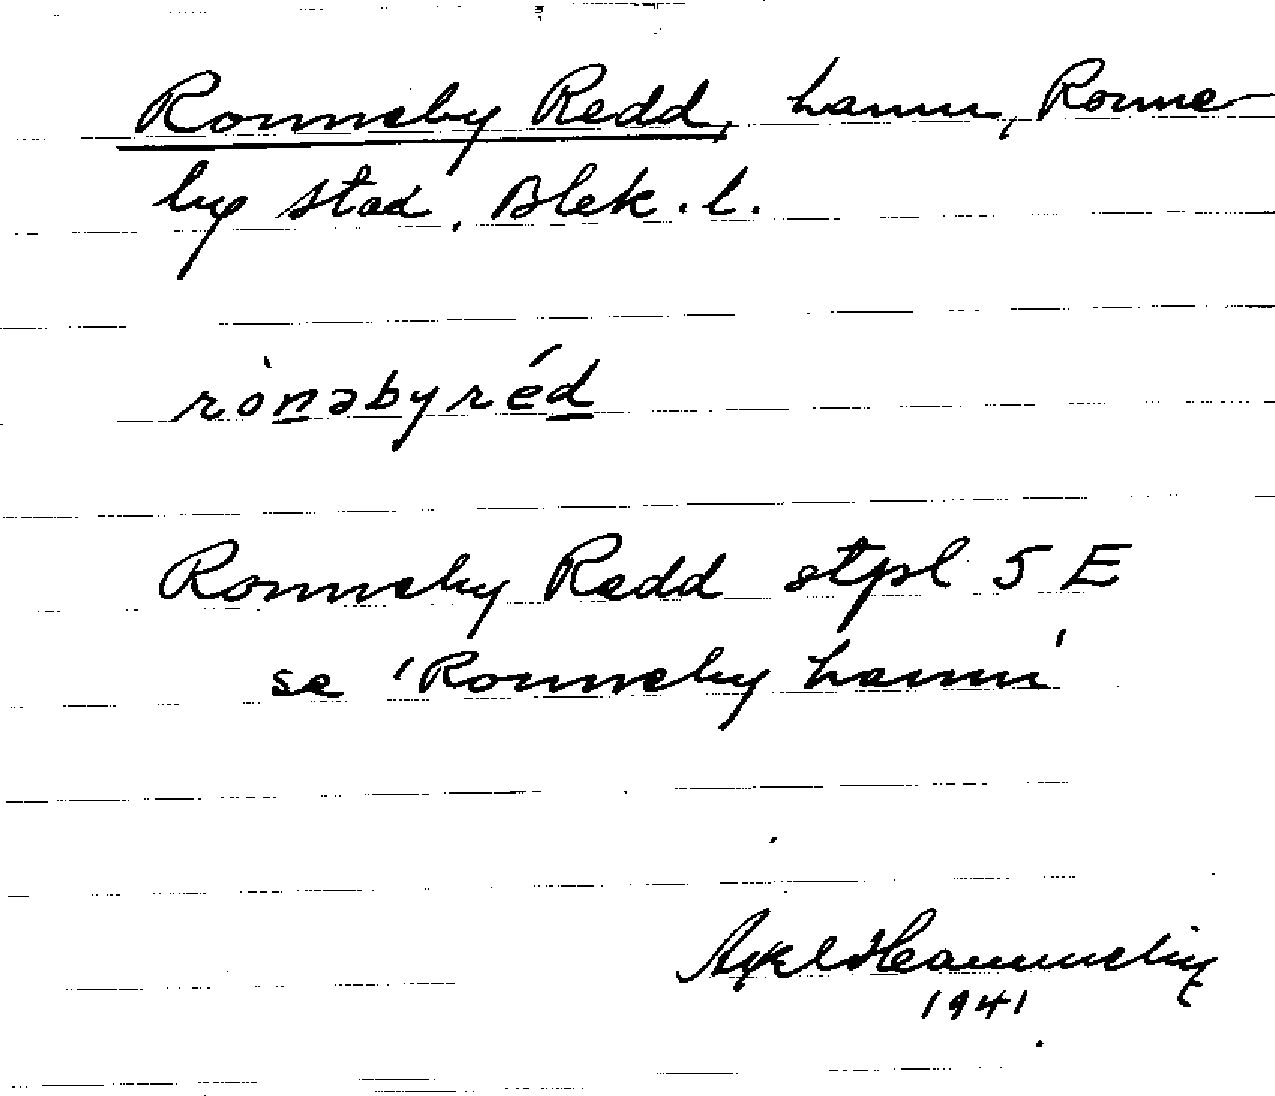 Ronneby Redd, hamn, Ronne-
by stad. Blek. l.
rònəbyréd
Ronneby Redd stpl 5 E
se 'Ronneby hamn'
Axel
1941